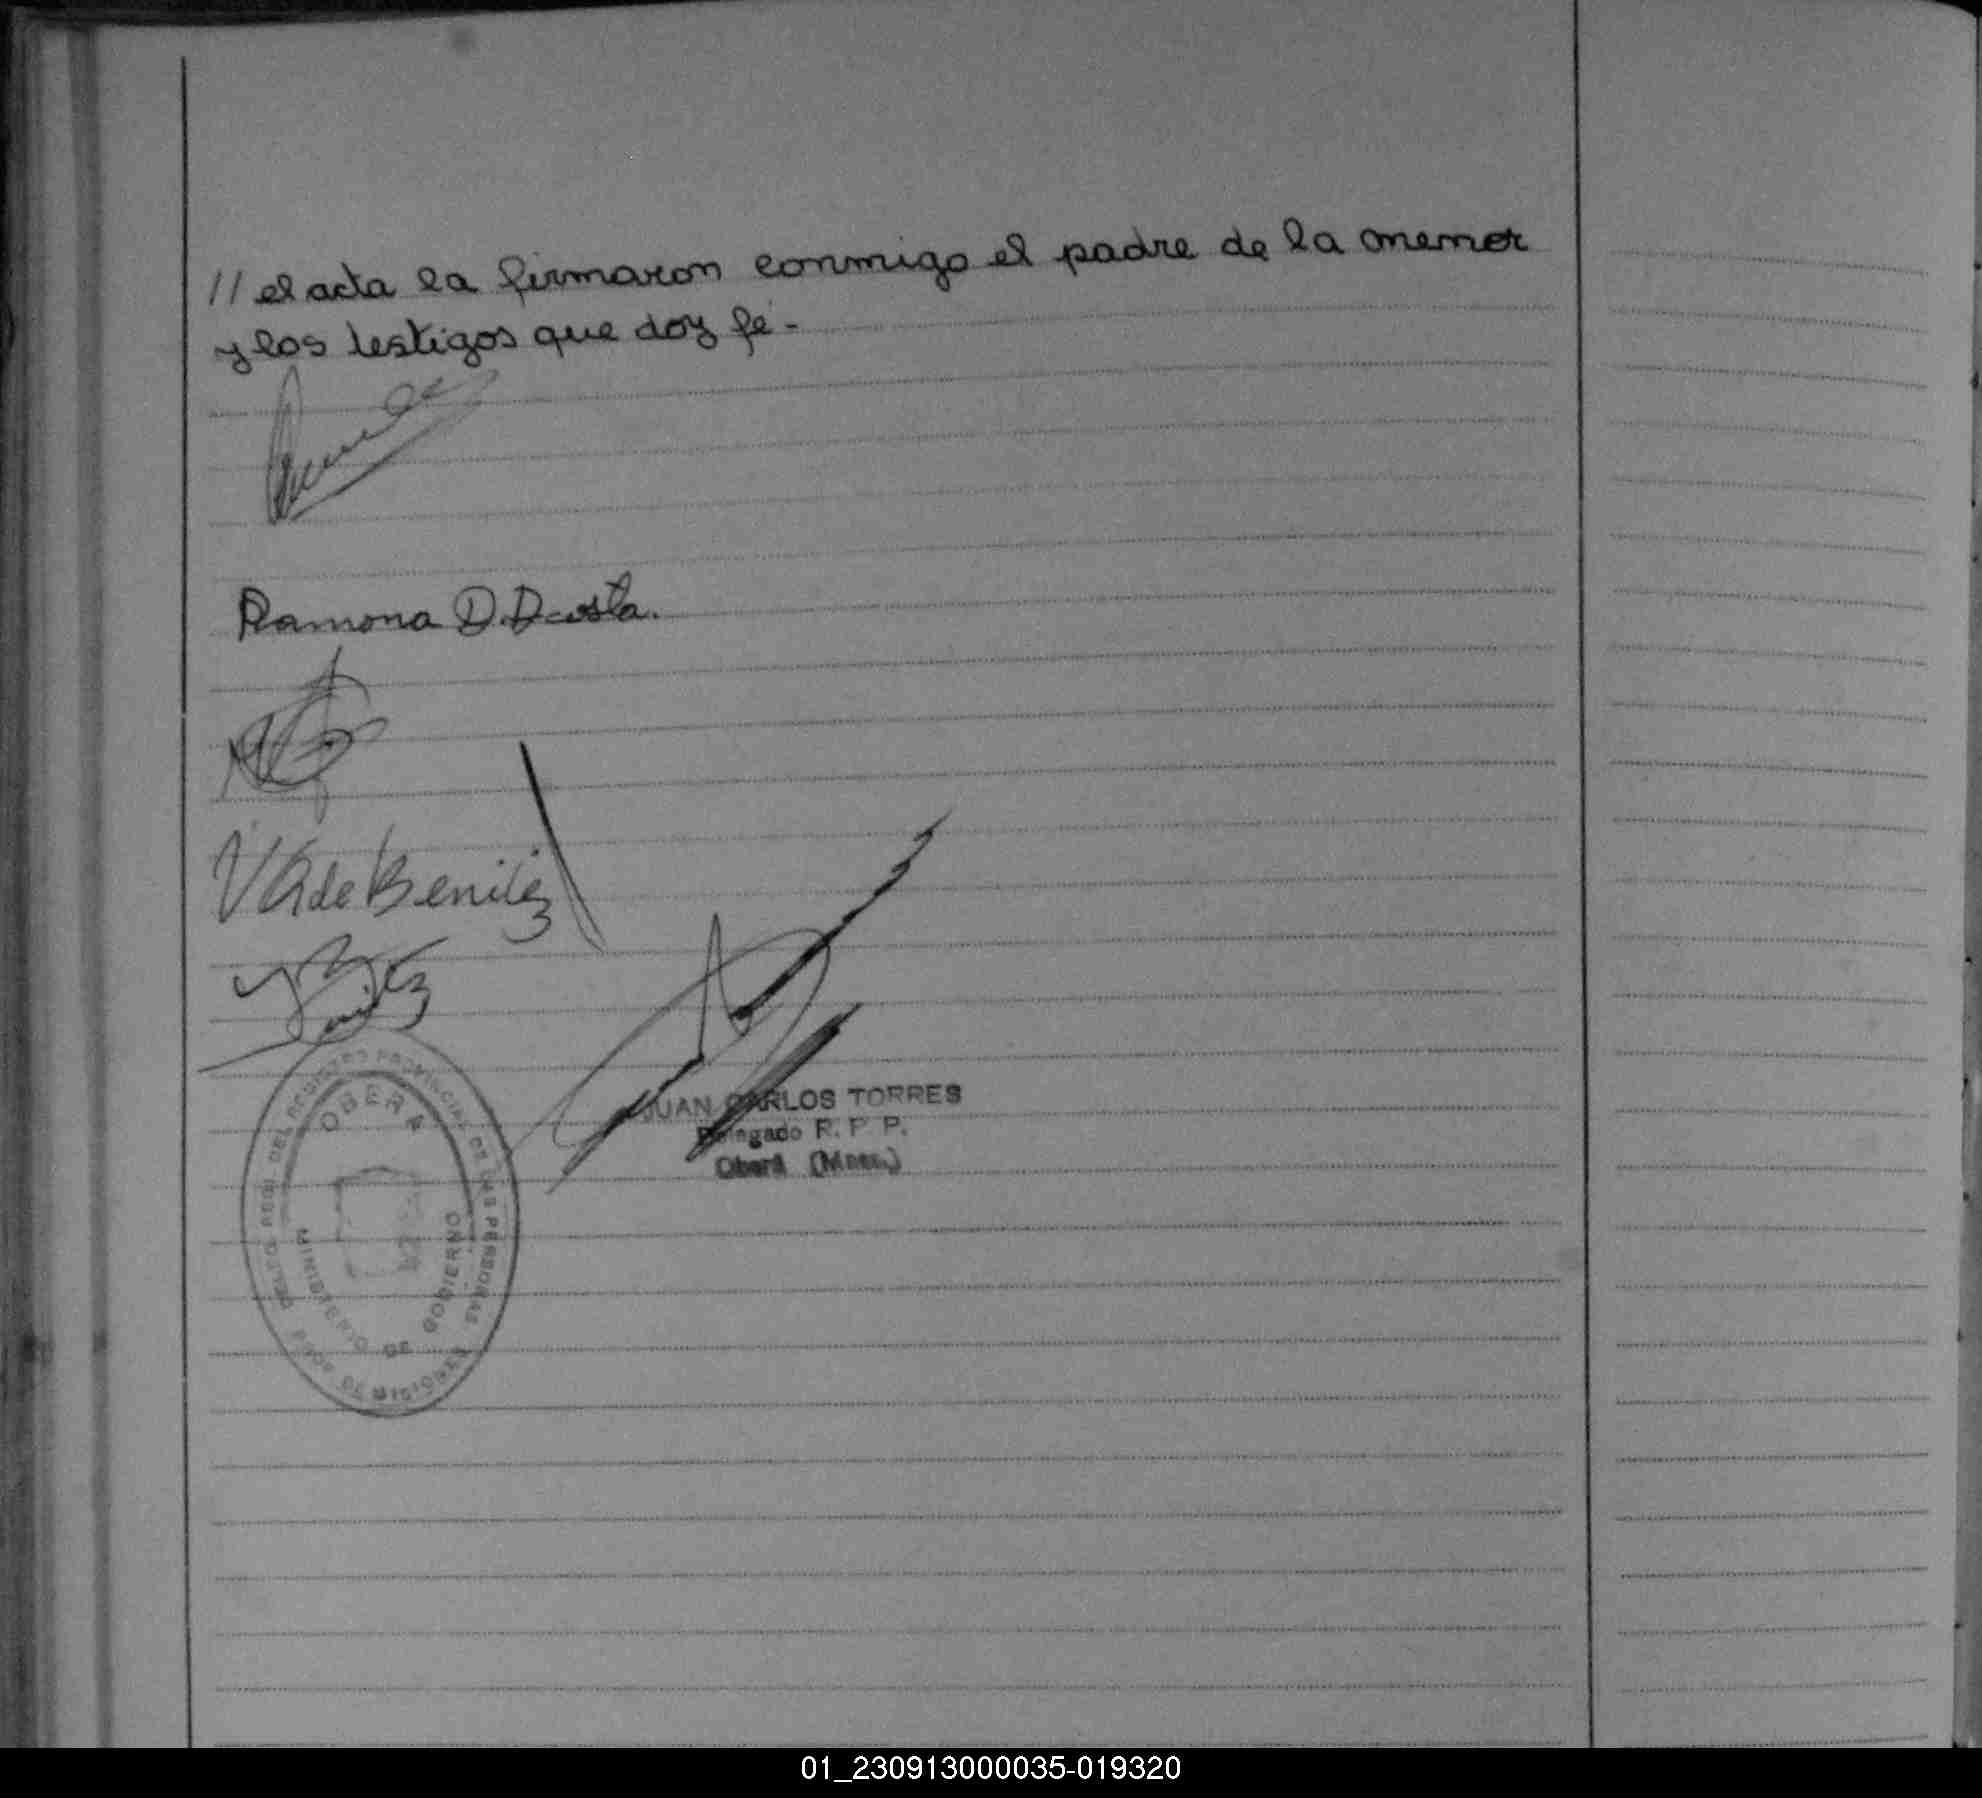 // el acta la firmaron conmigo el padre de la menor
y los testigos que doy fé -
Ramona D. Dacosta.
V G de Benitez
JUAN CARLOS TORRES
Delegado R. P. P.
Oberá (Mnes.)
DEL REGISTRO PROVINCIAL DE LAS PERSONAS
OBERA
MINISTERIO DE GOBIERNO
MISIONES
01_230913000035-019320